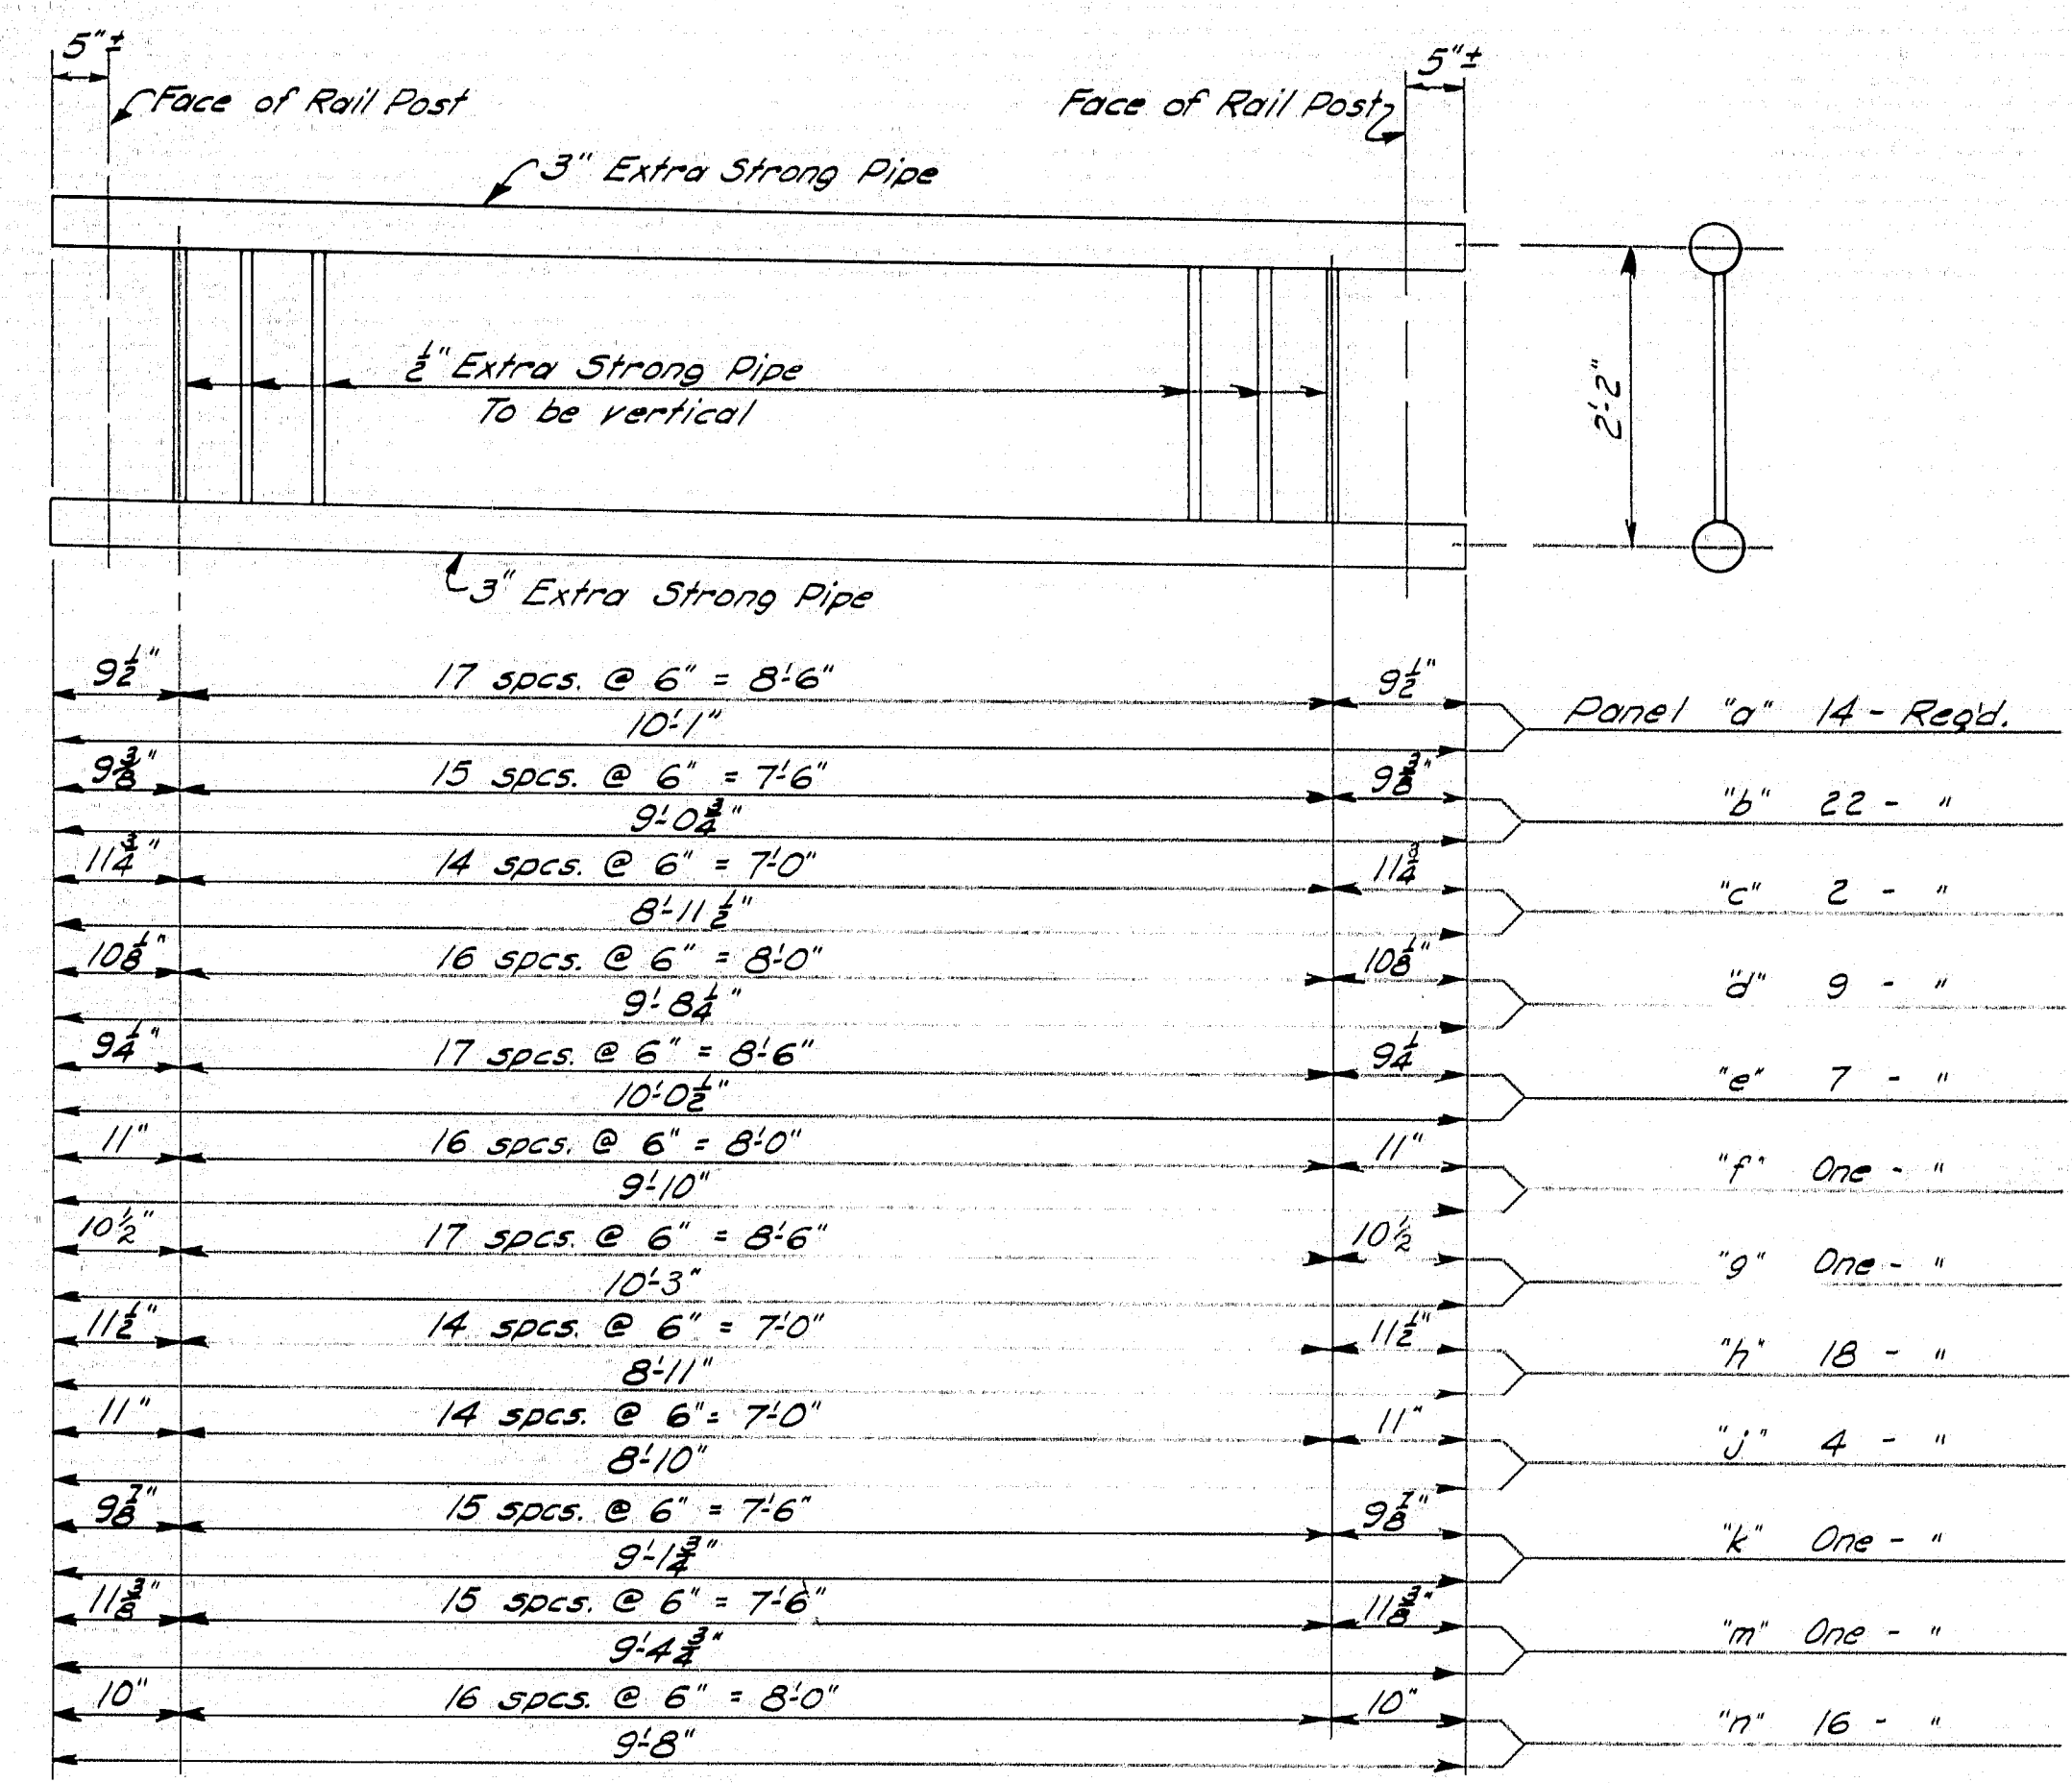 5"±
5"±
Face of Rail Post
Face of Rail Post
3" Extra Strong Pipe
1/2" Extra Strong Pipe
To be vertical
2'-2"
3" Extra Strong Pipe
9 1/2" 17 spcs. @ 6" = 8'-6" 9 1/2"
10'-1" Panel "a" 14 - Req'd.
9 3/8" 15 spcs. @ 6" = 7'-6" 9 3/8"
9'-0 3/4" "b" 22 - "
11 3/4" 14 spcs. @ 6" = 7'-0" 11 3/4
8'-11 1/2" "c" 2 - "
10 1/8" 16 spcs. @ 6" = 8'-0" 10 1/8"
9'-8 1/4" "d" 9 - "
9 1/4" 17 spcs. @ 6" = 8'-6" 9 1/4
10'-0 1/2" "e" 7 - "
11" 16 spcs. @ 6" = 8'-0" 11"
9'-10" "f" One - "
10 1/2" 17 spcs. @ 6" = 8'-6" 10 1/2
10'-3" "g" One - "
11 1/2" 14 spcs. @ 6" = 7'-0" 11 1/2"
8'-11" "h" 18 - "
11" 14 spcs. @ 6" = 7'-0" 11"
8'-10" "j" 4 - "
9 7/8" 15 spcs. @ 6" = 7'-6" 9 7/8"
9'-1 3/4" "k" One - "
11 3/8" 15 spcs. @ 6" = 7'-6" 11 3/8"
9'-4 3/4" "m" One - "
10" 16 spcs. @ 6" = 8'-0" 10"
9'-8" "n" 16 - "